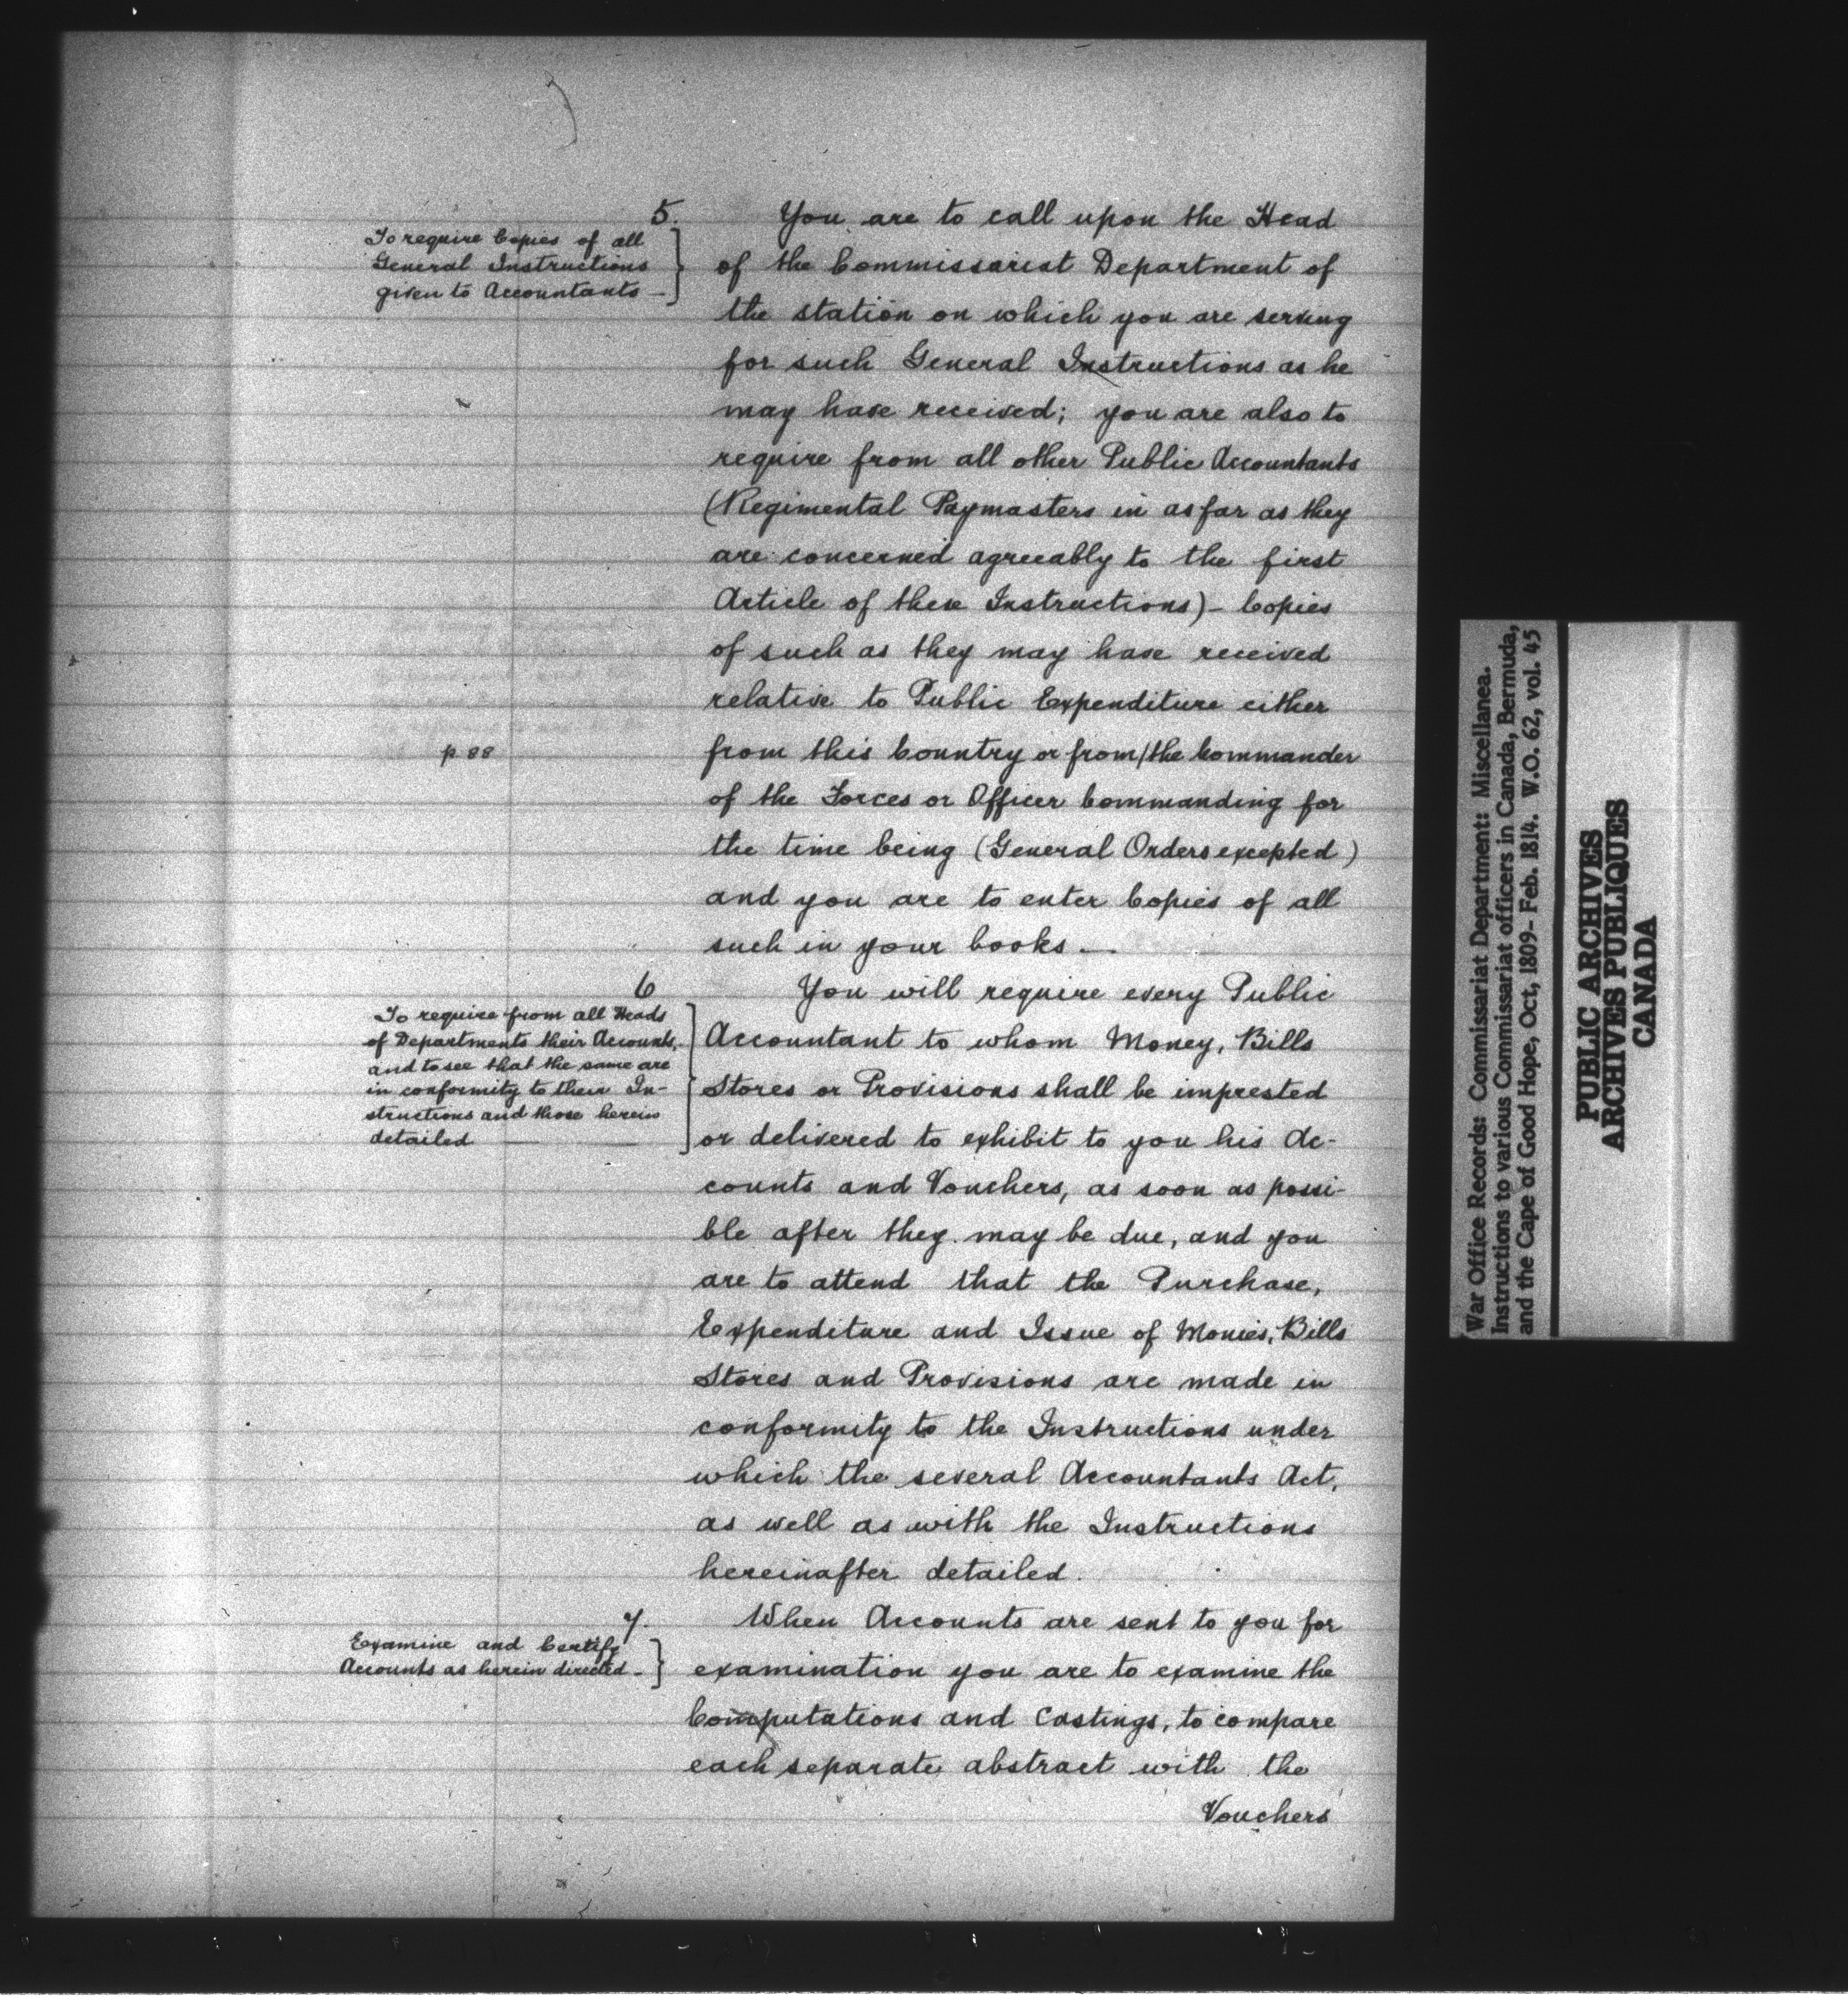 5.
To require Copies of all
General Instructions
given to Accountants —
You are to call upon the Head
of the Commissariat Department of
the station on which you are serving
for such General Instructions as he
may have received; you are also to
require from all other Public Accountants
(Regimental Paymasters in as far as they
are concerned agreeably to the first
Article of these Instructions) - Copies
of such as they may have received
relative to Public Expenditure either
p 88
from this Country or from/the Commander
of the Forces or Officer Commanding for
the time being (General Orders excepted)
and you are to enter Copies of all
such in your books —
6
To require from all Heads
of Departments their Accounts,
and to see that the same are
in conformity to their In-
structions and those herein
detailed —— ——
You will require every Public
Accountant to whom Money, Bills
Stores or Provisions shall be imprested
or delivered to exhibit to you his Ac-
counts and Vouchers, as soon as possi-
ble after they may be due, and you
are to attend that the Purchase,
Expenditure and Issue of Monies, Bills
Stores and Provisions are made in
conformity to the Instructions under
which the several Accountants Act,
as well as with the Instructions
hereinafter detailed.
7.
Examine and Certify
Accounts as herein directed -
When Accounts are sent to you for
examination you are to examine the
Computations and Castings, to compare
each separate abstract with the
Vouchers
War Office Records: Commissariat Department: Miscellanea.
Instructions to various Commissariat officers in Canada, Bermuda,
and the Cape of Good Hope, Oct, 1809- Feb. 1814. W.O. 62, vol. 45
PUBLIC ARCHIVES
ARCHIVES PUBLIQUES
CANADA